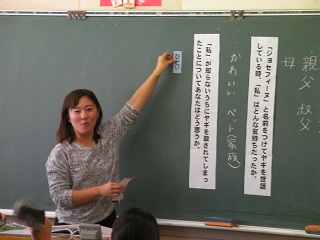 親父 叔父
母
「ジョセフィーヌ」と名前をつけてヤギを世話
している時、「私」はどんな気持ちだったか。
かわいい ペット(家族)
「私」が知らないうちにヤギを殺されてしまっ
たことについてあなたはどう思うか。
ひどい